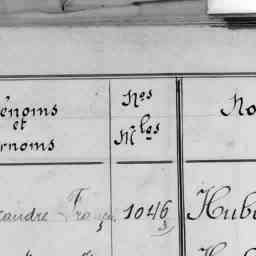 énoms Nos No
et
rnoms Mles
candre Franç. 1046 Hub